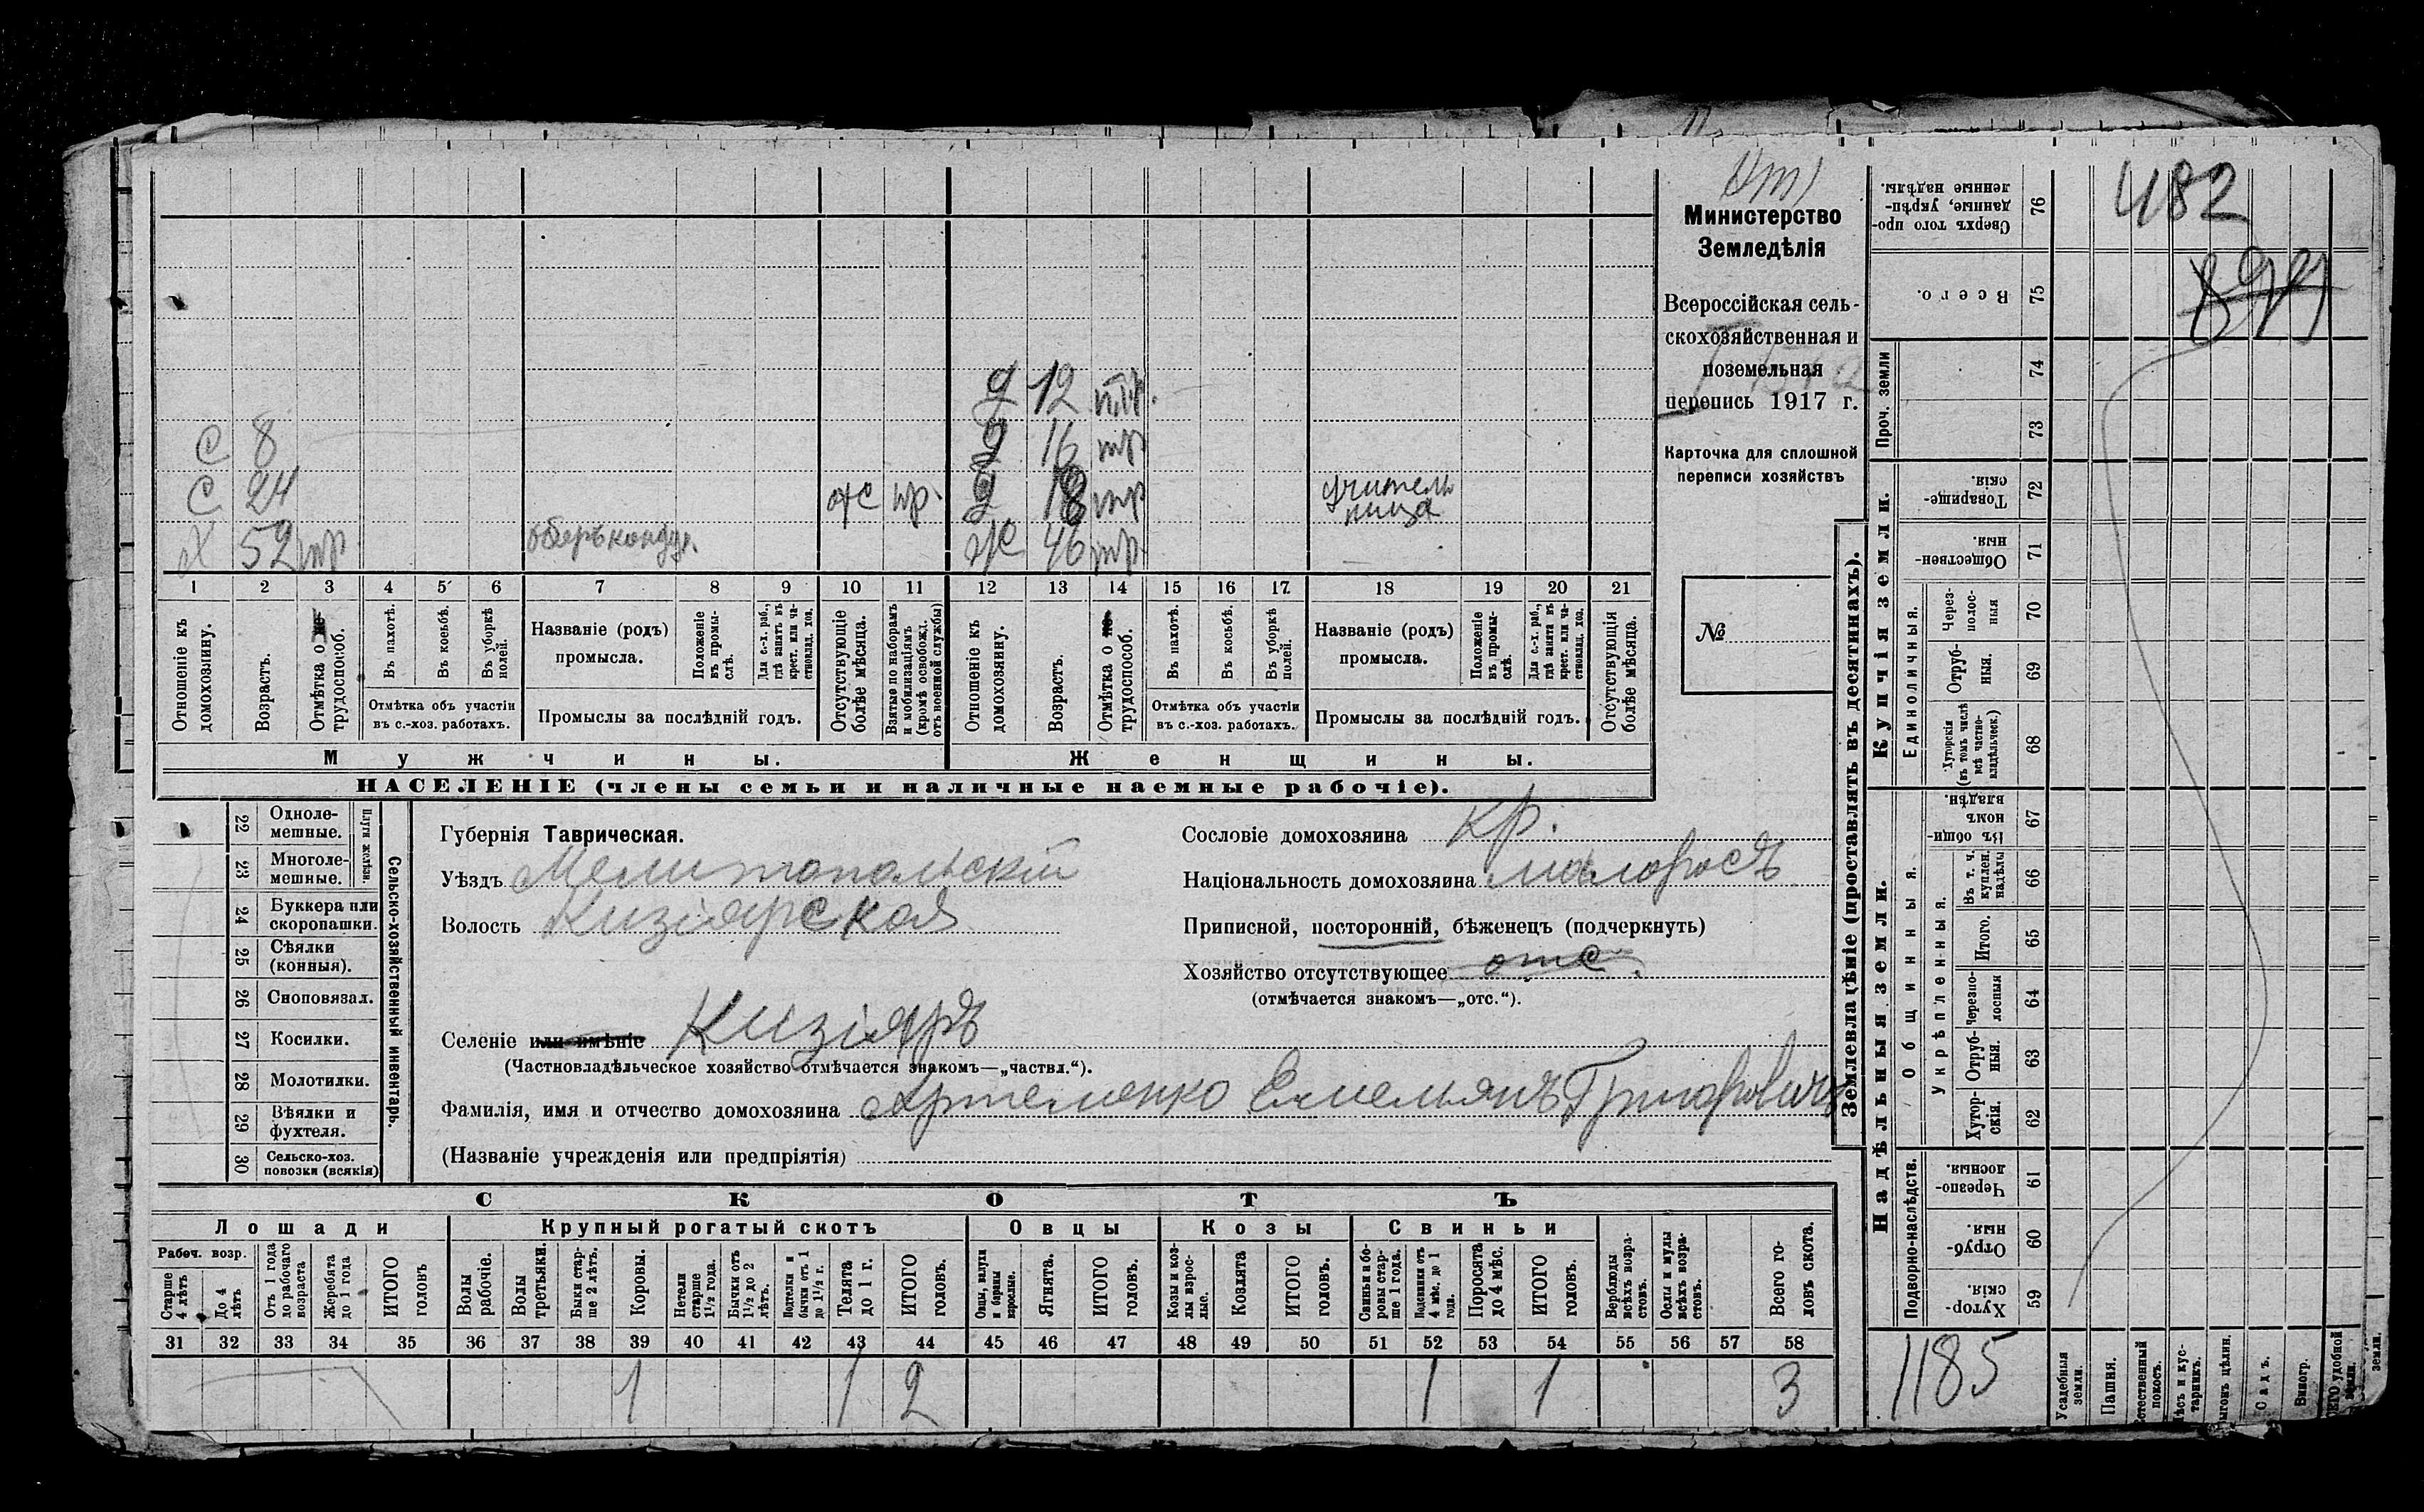 Министерство
Земледѣлія
Всероссійская сель-
скохозяйственная и
поземельная
перепись 1917 г.
Карточка для сплошной
переписи хозяйствъ
№
482
д 12
С 8 д 16 тр
С 24 отс пр. д 18 тр учитель
ница
Х 52 тр оберъ кондук. Ж 46 тр.
1 2 3 4 5 6 7 8 9 10 11 12 13 14 15 16 17 18 19 20 21
Отношеніе къ домохозяину.
Возрастъ.
Отмѣтка о не-трудоспособ.
Въ пахотѣ.
Въ косьбѣ.
Въ уборкѣ полей.
Отмѣтка объ участіи
въ с.-хоз. работахъ.
Названіе (родъ)
промысла.
Положеніе въ промы-слѣ.
Для с.-х. раб., гдѣ занятъ въ крест. или ча-стновлад. хоз.
Промыслы за послѣдній годъ.
Отсутствующіе болѣе мѣсяца.
Взятые по наборамъ и мобилизаціямъ (кромѣ освобожд. отъ военной службы)
Отношеніе къ домохозяину.
Возрастъ.
Отмѣтка о не-трудоспособ.
Въ пахотѣ.
Въ косьбѣ.
Въ уборкѣ полей.
Отмѣтка объ участіи
въ с.-хоз. работахъ.
Названіе (родъ)
промысла.
Положеніе въ промы-слѣ.
Для с.-х. раб., гдѣ занята въ крест. или ча-стновлад. хоз.
Промыслы за послѣдній годъ.
Отсутствующія болѣе мѣсяца.
Мужчины. Женщины.
НАСЕЛЕНІЕ (члены семьи и наличные наемные рабочіе).
Сельско-хозяйственный инвентарь.
Плуги желѣзн.
22 Одноле-мешные.
23 Многоле-мешные.
24 Буккера или скоропашки.
25 Сѣялки (конныя).
26 Сноповязал.
27 Косилки.
28 Молотилки.
29 Вѣялки и фухтеля.
30 Сельско-хоз. повозки (всякія)
Губернія Таврическая.
Уѣздъ Мелитопольскій
Волость Кизіярская
Селеніе или имѣніе Кизіяръ
(Частновладѣльческое хозяйство отмѣчается знакомъ—„частвл.“).
Фамилія, имя и отчество домохозяина Артеменко Емельянъ Григоровичъ
(Названіе учрежденія или предпріятія)
Сословіе домохозяина кр.
Національность домохозяина малоросъ
Приписной, посторонній, бѣженецъ (подчеркнуть)
Хозяйство отсутствующее отс.
(отмѣчается знакомъ—„отс.“).
СКОТЪ
Лошади Крупный рогатый скотъ Овцы Козы Свиньи
Рабоч. возр.
Старше 4 лѣтъ
До 4 лѣтъ
Отъ 1 года до рабочаго возраста
Жеребята до 1 года
ИТОГО головъ
Волы рабочіе.
Волы третьяки.
Быки стар-ше 2 лѣтъ.
Коровы.
Нетели старше 1½ года.
Бычки отъ 1½ до 2 лѣтъ.
Подтелки и бычки отъ 1 до 1½ г.
Телята до 1 г.
ИТОГО головъ.
Овцы, валухи и бараны взрослые.
Ягнята.
ИТОГО головъ.
Козы и коз-лы взрос-лые.
Козлята
ИТОГО головъ.
Свиньи и бо-ровы стар-ше 1 года.
Подсвинки отъ 4 мѣс. до 1 года.
Поросята до 4 мѣс.
ИТОГО головъ.
Верблюды всѣхъ возра-стовъ.
Ослы и мулы всѣхъ возра-стовъ.
Всего го-ловъ скота.
31 32 33 34 35 36 37 38 39 40 41 42 43 44 45 46 47 48 49 50 51 52 53 54 55 56 57 58
1 1 2 1 1 3
Землевладѣніе (проставлять въ десятинахъ).
Купчія земли.
Надѣльныя земли.
76 Сверхъ того про-данные, укрѣп-ленные надѣлы.
75 Всего.
Проч. земли
74
73
72 Товарище-скія.
71 Обществен-ныя.
Единоличныя.
70 Через-полос-ныя
69 Отруб-ныя.
68 Хуторскія (въ томъ числѣ всѣ частно-владѣльческ.)
Общинныя.
67 Въ общин-номъ владѣн.
Укрѣпленныя.
66 Въ т. ч. куплен. надѣлы
65 Итого.
64 Черезпо-лосныя
63 Отруб-ныя.
62 Хутор-скія.
Подворно-наслѣдств.
61 Черезпо-лосныя.
60 Отруб-ныя.
59 Хутор-скія.
1185
Усадебныя земли.
Пашня.
Садъ.
Виногр.
земли.